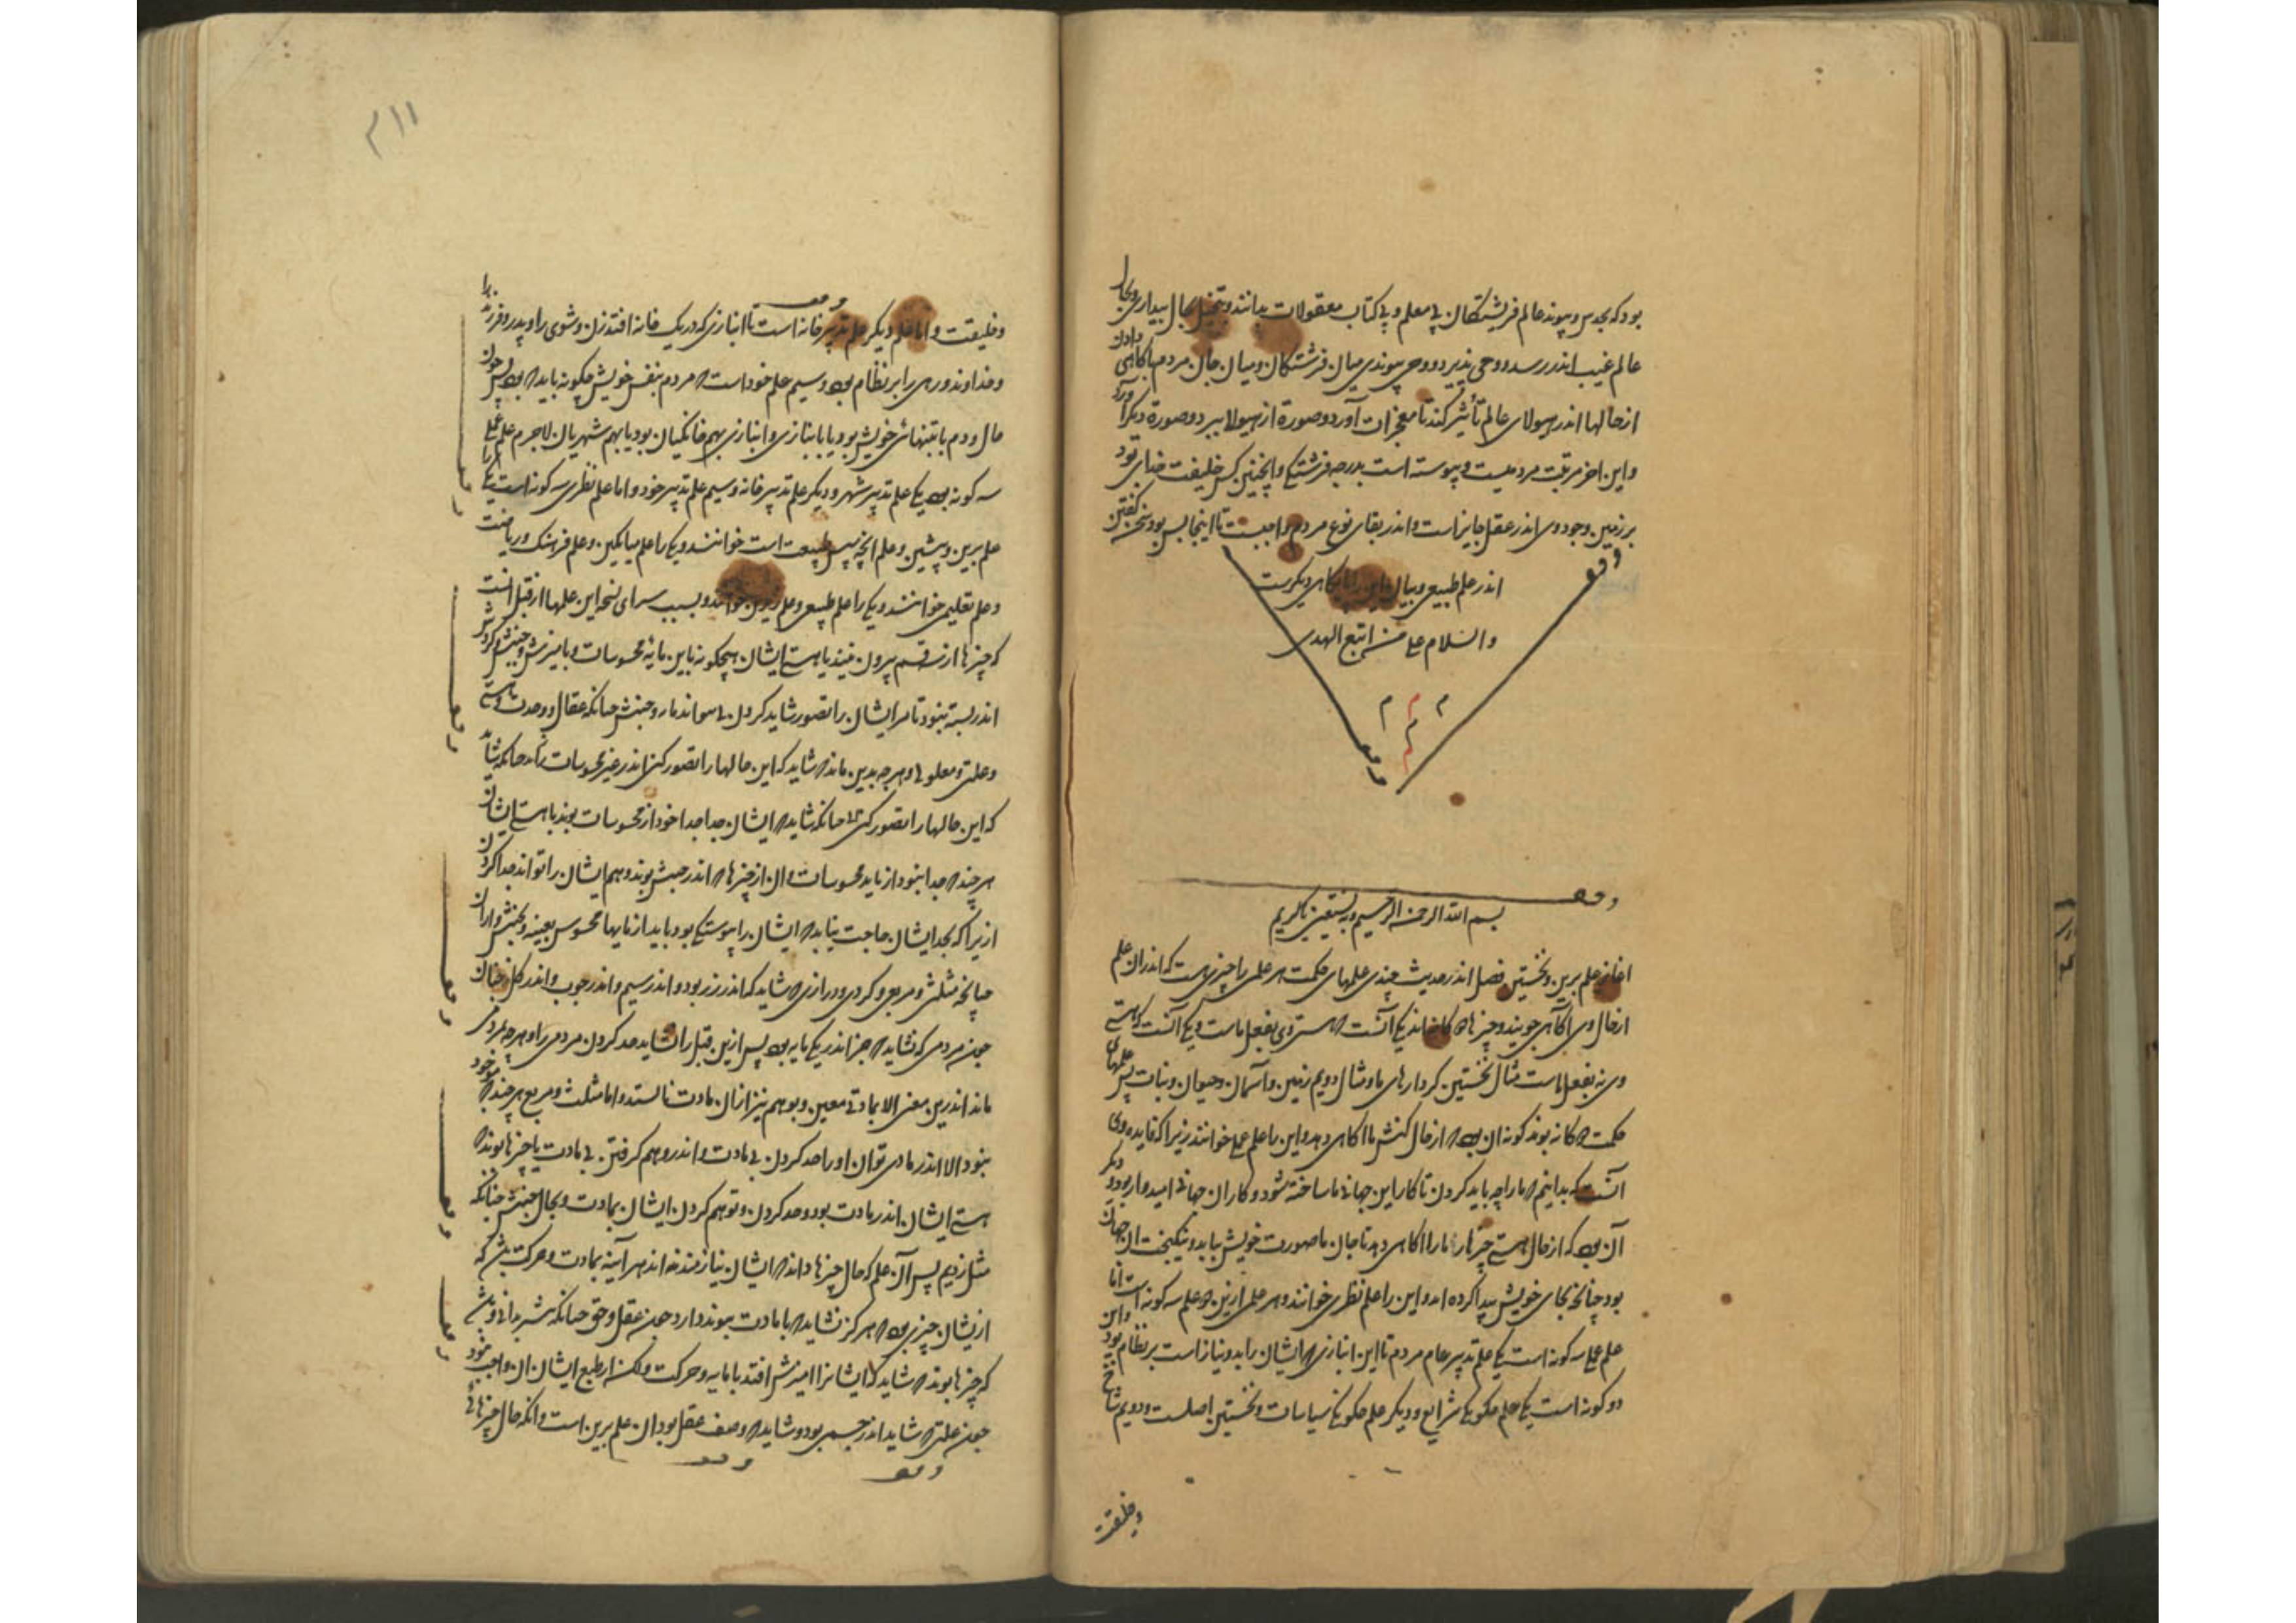 بود که بحدس و پیوند عالم فریشتگان بی معلم و بی کتاب معقولات بداند و بتخیل بحال بیداری بحال
عالم غیب اندر رسد و وحی پذیرد و وحی پیوندی میان فرشتگان و میان جان مردم باگاهی دادن
از حالها اندر هیولای عالم تأثیر کند تا معجزات آورد و صورة از هیولا ببرد و صورة دیگر آورد
و این اخر مرتبت مردمیست و پیوسته است بدرجه فرشتگی و اینچنین کس خلیفت خدای بود
بر زمین و وجود وی اندر عقل جایز است و اندر بقای نوع مردم واجبست تا اینجا بس بود سخن گفتن
اندر علم طبیعی و بیان این را جایگاهی دیگرست
والسلام علی من اتبع الهدی
بسم الله الرحمن الرحیم وبه نستعین یا کریم
اغاز علم برین و نخستین فصل اندر حدیث چندی علمهای حکمت هر علمی را چیزی هست که اندر ان علم
از حال وی آگاهی جویند و چیزها دو گانه اند یکی آنست که هستی وی بفعل ماست و یکی آنست که هستی
وی نه بفعل ماست مثال نخستین کردارهای ما و مثال دویم زمین و آسمان و حیوان و نبات پس علمهای
حکمت دو گانه بوند گونه ان بود که از حال کنش ما اگاهی دهد و این را علم عملی خوانند زیرا که فایده وی
آنست که بدانیم که ما را چه باید کردن تا کار این جهانی ما ساخته شود و کار ان جهانی امیدوار بود و دیگر
آن بود که از حال هستی چیزها ما را اگاهی دهد تا جان ما صورت خویش بیابد و نیکبخت ان جهان
بود چنانچه بجای خویش پیدا کرده اید و این را علم نظری خوانند و هر علمی ازین دو علم سه گونه است اما
علم عملی سه گونه است یکی علم تدبیر عام مردم تا این انبازی که ایشان را بدو نیاز است بر نظام بود و این
دو گونه است یکی علم چگونگی شرایع و دیگر علم چگونگی سیاسات و نخستین اصلست و دویم شاخ
وخلیفت
و خلیفت و اما علم دیگر علم تدبیر خانه است تا انبازی که در یک خانه افتد زن و شوی را و پدر و فرزند را
و خداوند و رهی را بر نظام بود و سیم علم خود است که مردم بنفس خویش چگونه باید که بود پس چون
حال مردم یا بتنهائی خویش بود یا بانبازی و انبازی یا بهم خانگیان بود یا بهم شهریان لاجرم علم عملی
سه گونه بود یکی علم تدبیر شهر و دیگر علم تدبیر خانه و سیم علم تدبیر خود و اما علم نظری سه گونه است یکی را
علم برین و پیشین و علم آنچه سپس طبیعت است خوانند و یکی را علم میانگین و علم فرهنگ و ریاضت
و علم تعلیمی خوانند و یکی را علم طبیعی و علم زیرین خوانند و بسبب سرای سخه این علمها از قبل انست
که چیزها از سه قسم بیرون نیند یا هستی ایشان هیچگونه باین مایۀ محسوسات و بامیزش و جنبش و گردش
اندر بسته نبود تا مر ایشان را تصور شاید کردن بی پیوند ماده و جنبش چنانکه عقل و وحدت و هستی
و علتی و معلولی و هر چه بدین ماند که شاید که این حالها را تصور کنی اندر غیر محسوسات
که این حالها را تصور کنی چنانکه شاید که ایشان جدا جدا خود از محسوسات بوند یا هستی ایشان
هر چند که جدا نبود از باید محسوسات و ان از چیزها که اندر جنبش بوند و هم ایشان را تواند جدا کردن
ازیرا که بحد ایشان حاجت نیاید که ایشان را پیوستگی بود باید از مایها محسوس بعینه و بجنبش داران
چنانچه مثلثی و مربعی و گردی و درازی که شاید که اندر زر بود و اندر سیم و اندر چوب و اندر گل نه چنان
چون مردمی که نشاید که جز اندر یکی مایه بود پس ازین قبل را نشاید حد کردن مردمی را و هر چه بمردمی
ماند اندرین معنی الا بمادتی معین و بوهم نیز از ان مادت نالستد و اما مثلث و مربع هر چند که موجود
نبود الا اندر مادی توان او را حد کردن بی مادت و اندر وهم گرفتن بی مادت یا چیزها بوند که
هستی ایشان اندر مادت بود و حد کردن و توهم کردن ایشان بمادت و بحال جنبش چنانکه
مثل زدیم پس آن علم که حال چیزها داند که ایشان نیازمند نه اند هر آینه بمادت و حرکت باش که
از یشان چیزی بود که هرگز نشاید که با مادت پیوند دارد چون عقل و حق چنانکه
که چیزها بوند که شاید که ایشانرا امیزش افتد با مایه و حرکت ولکن از طبع ایشان ان واجب نبود
چون علتی که شاید اندر جسمی بود و شاید که وصف عقل بود ان علم برین است و انکه حال چیزهائی